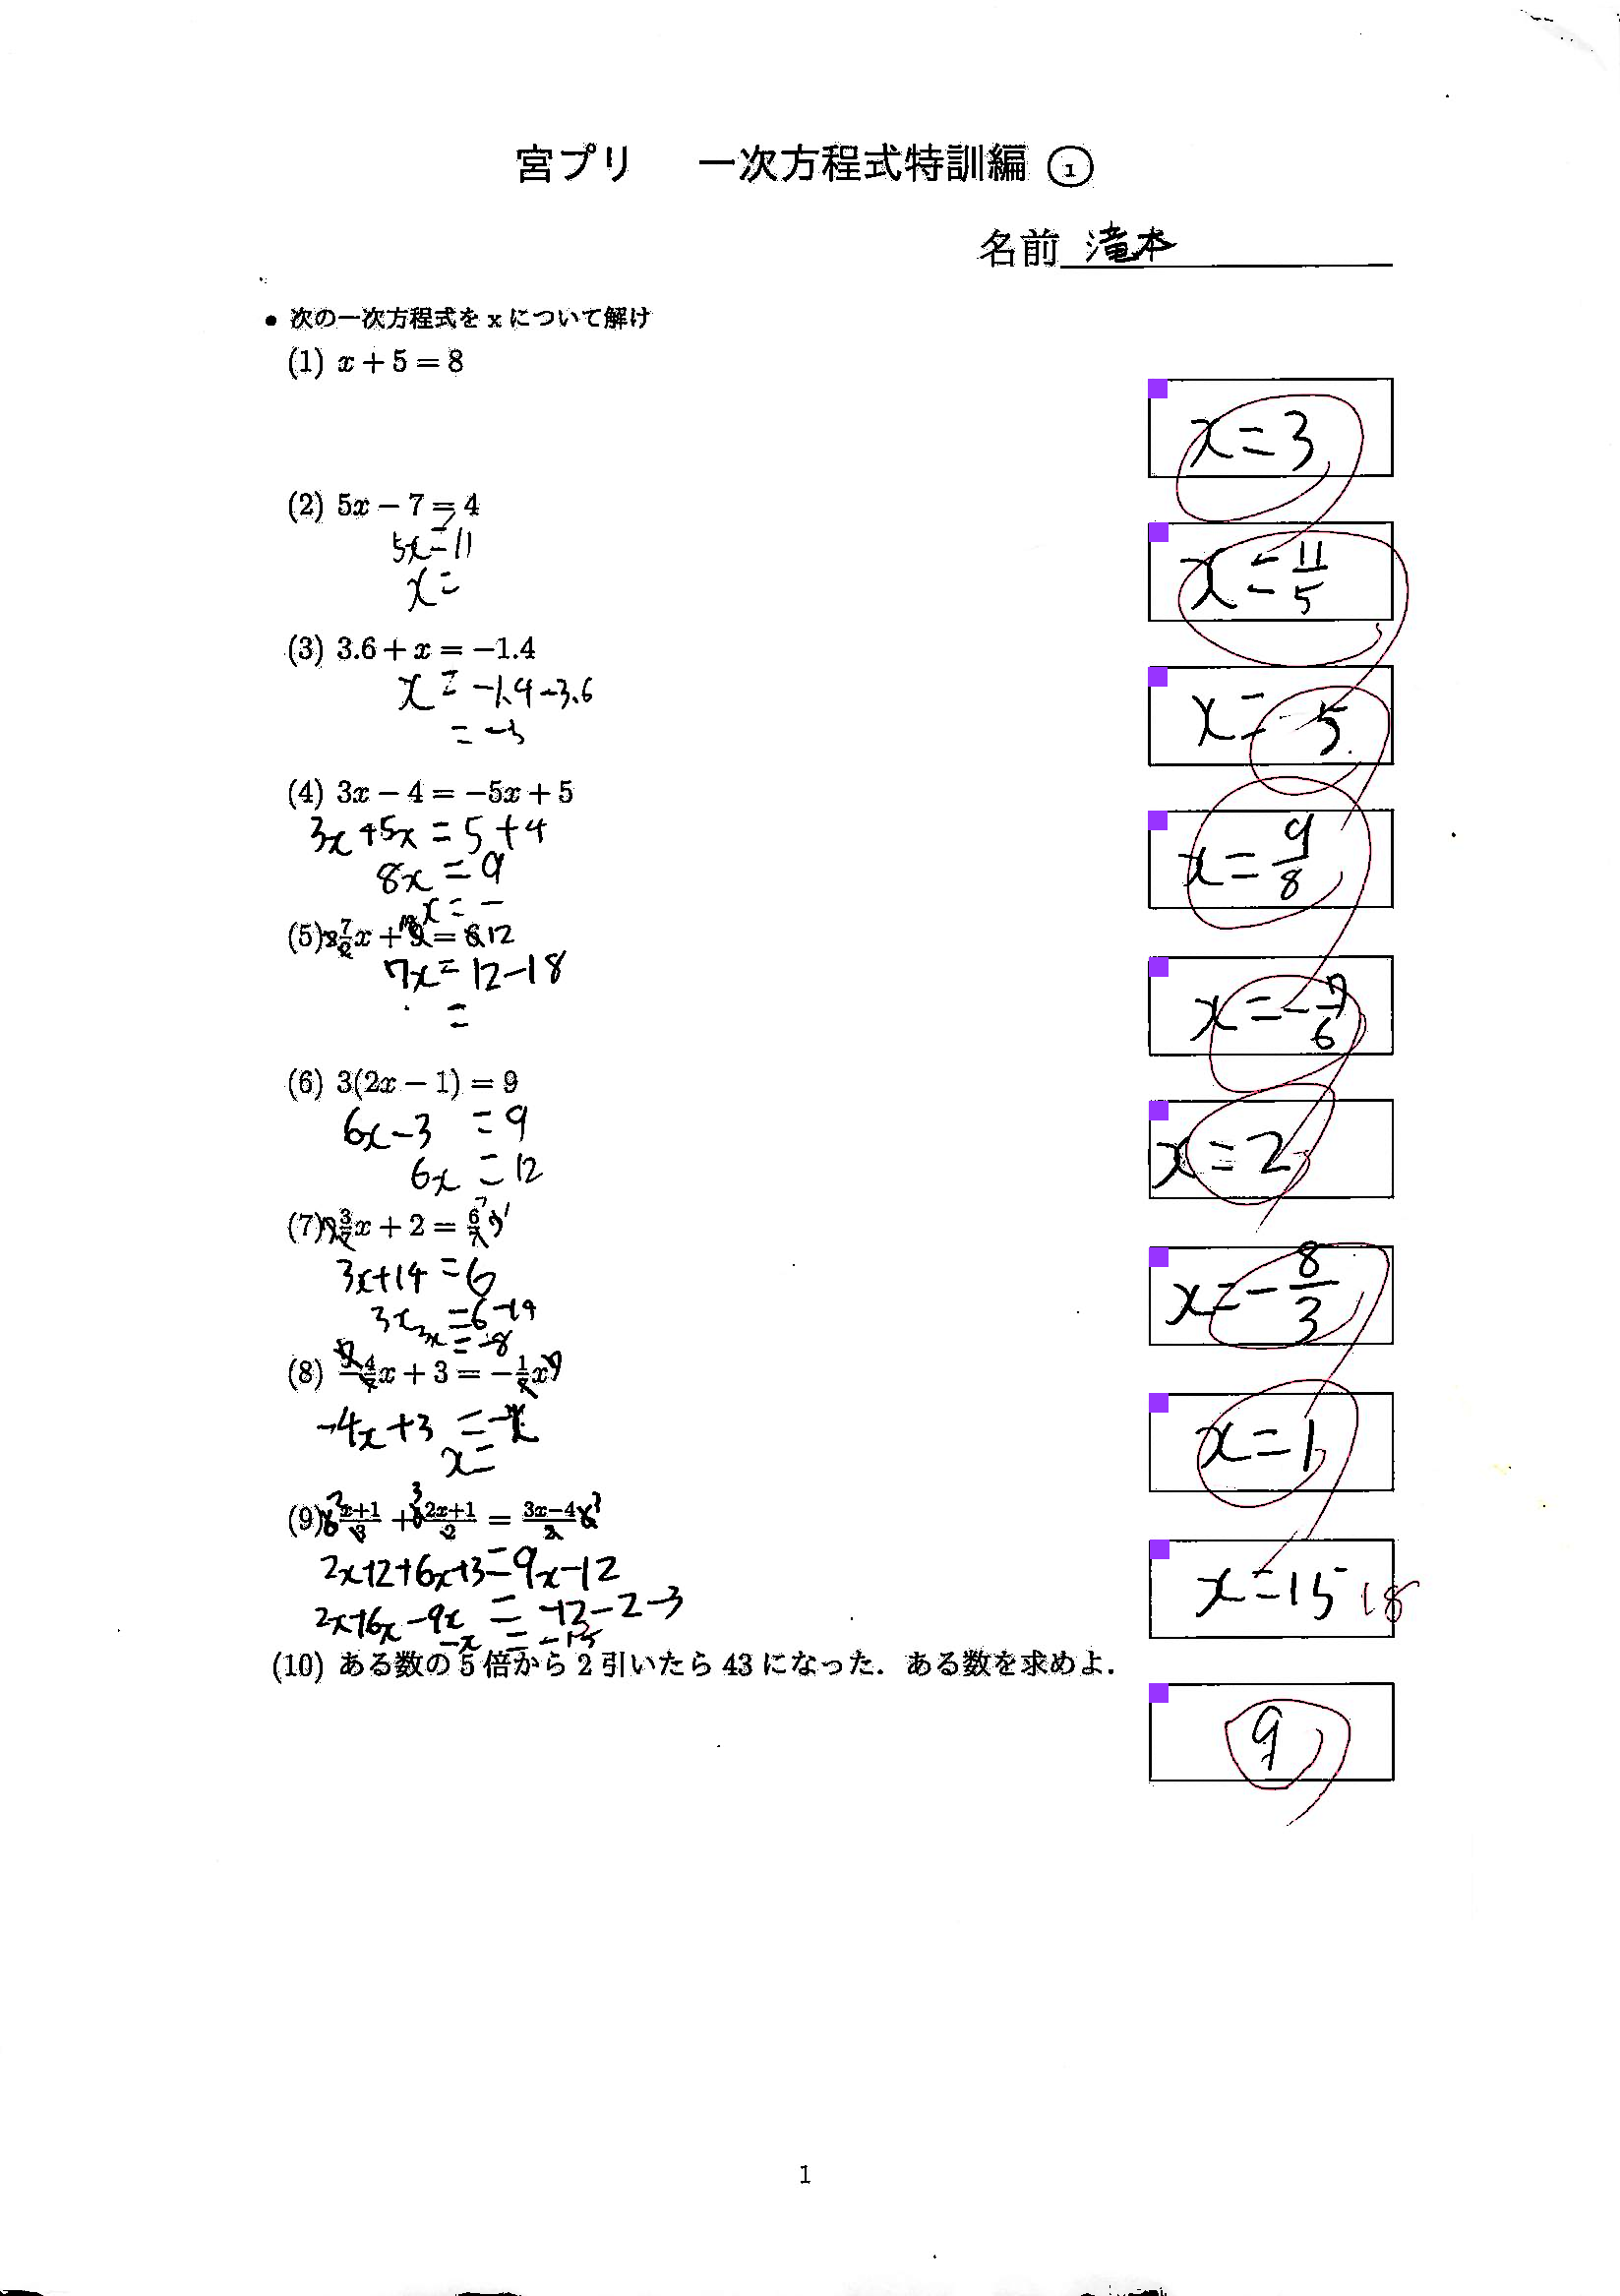 宮プリ 一次方程式特訓編 ①
名前 滝本
• 次の一次方程式を x について解け
(1) x + 5 = 8
x = 3
(2) 5x − 7 = 4
5x = 11
x =
x = 11/5
(3) 3.6 + x = −1.4
x = −1.4 − 3.6
= −3
x = −5
(4) 3x − 4 = −5x + 5
3x + 5x = 5 + 4
8x = 9
x = −
x = 9/8
(5) 7/2 x + 9 = 6 12
7x = 12 − 18
=
x = − 7/6
(6) 3(2x − 1) = 9
6x − 3 = 9
6x = 12
x = 2
(7) 3/7 x + 2 = 6/7
3x + 14 = 6
3x = 6 − 14
3x = −8
x = − 8/3
(8) − 4/7 x + 3 = − 1/7 x
−4x + 3 =
x =
x = 1
(9) x+1/3 + 2x+1/2 = 3x−4/2
2x + 2 + 6x + 3 = 9x − 12
2x + 6x − 9x = −12 − 2 − 3
−x = −15
x = 15 18
(10) ある数の 5 倍から 2 引いたら 43 になった．ある数を求めよ．
9
1